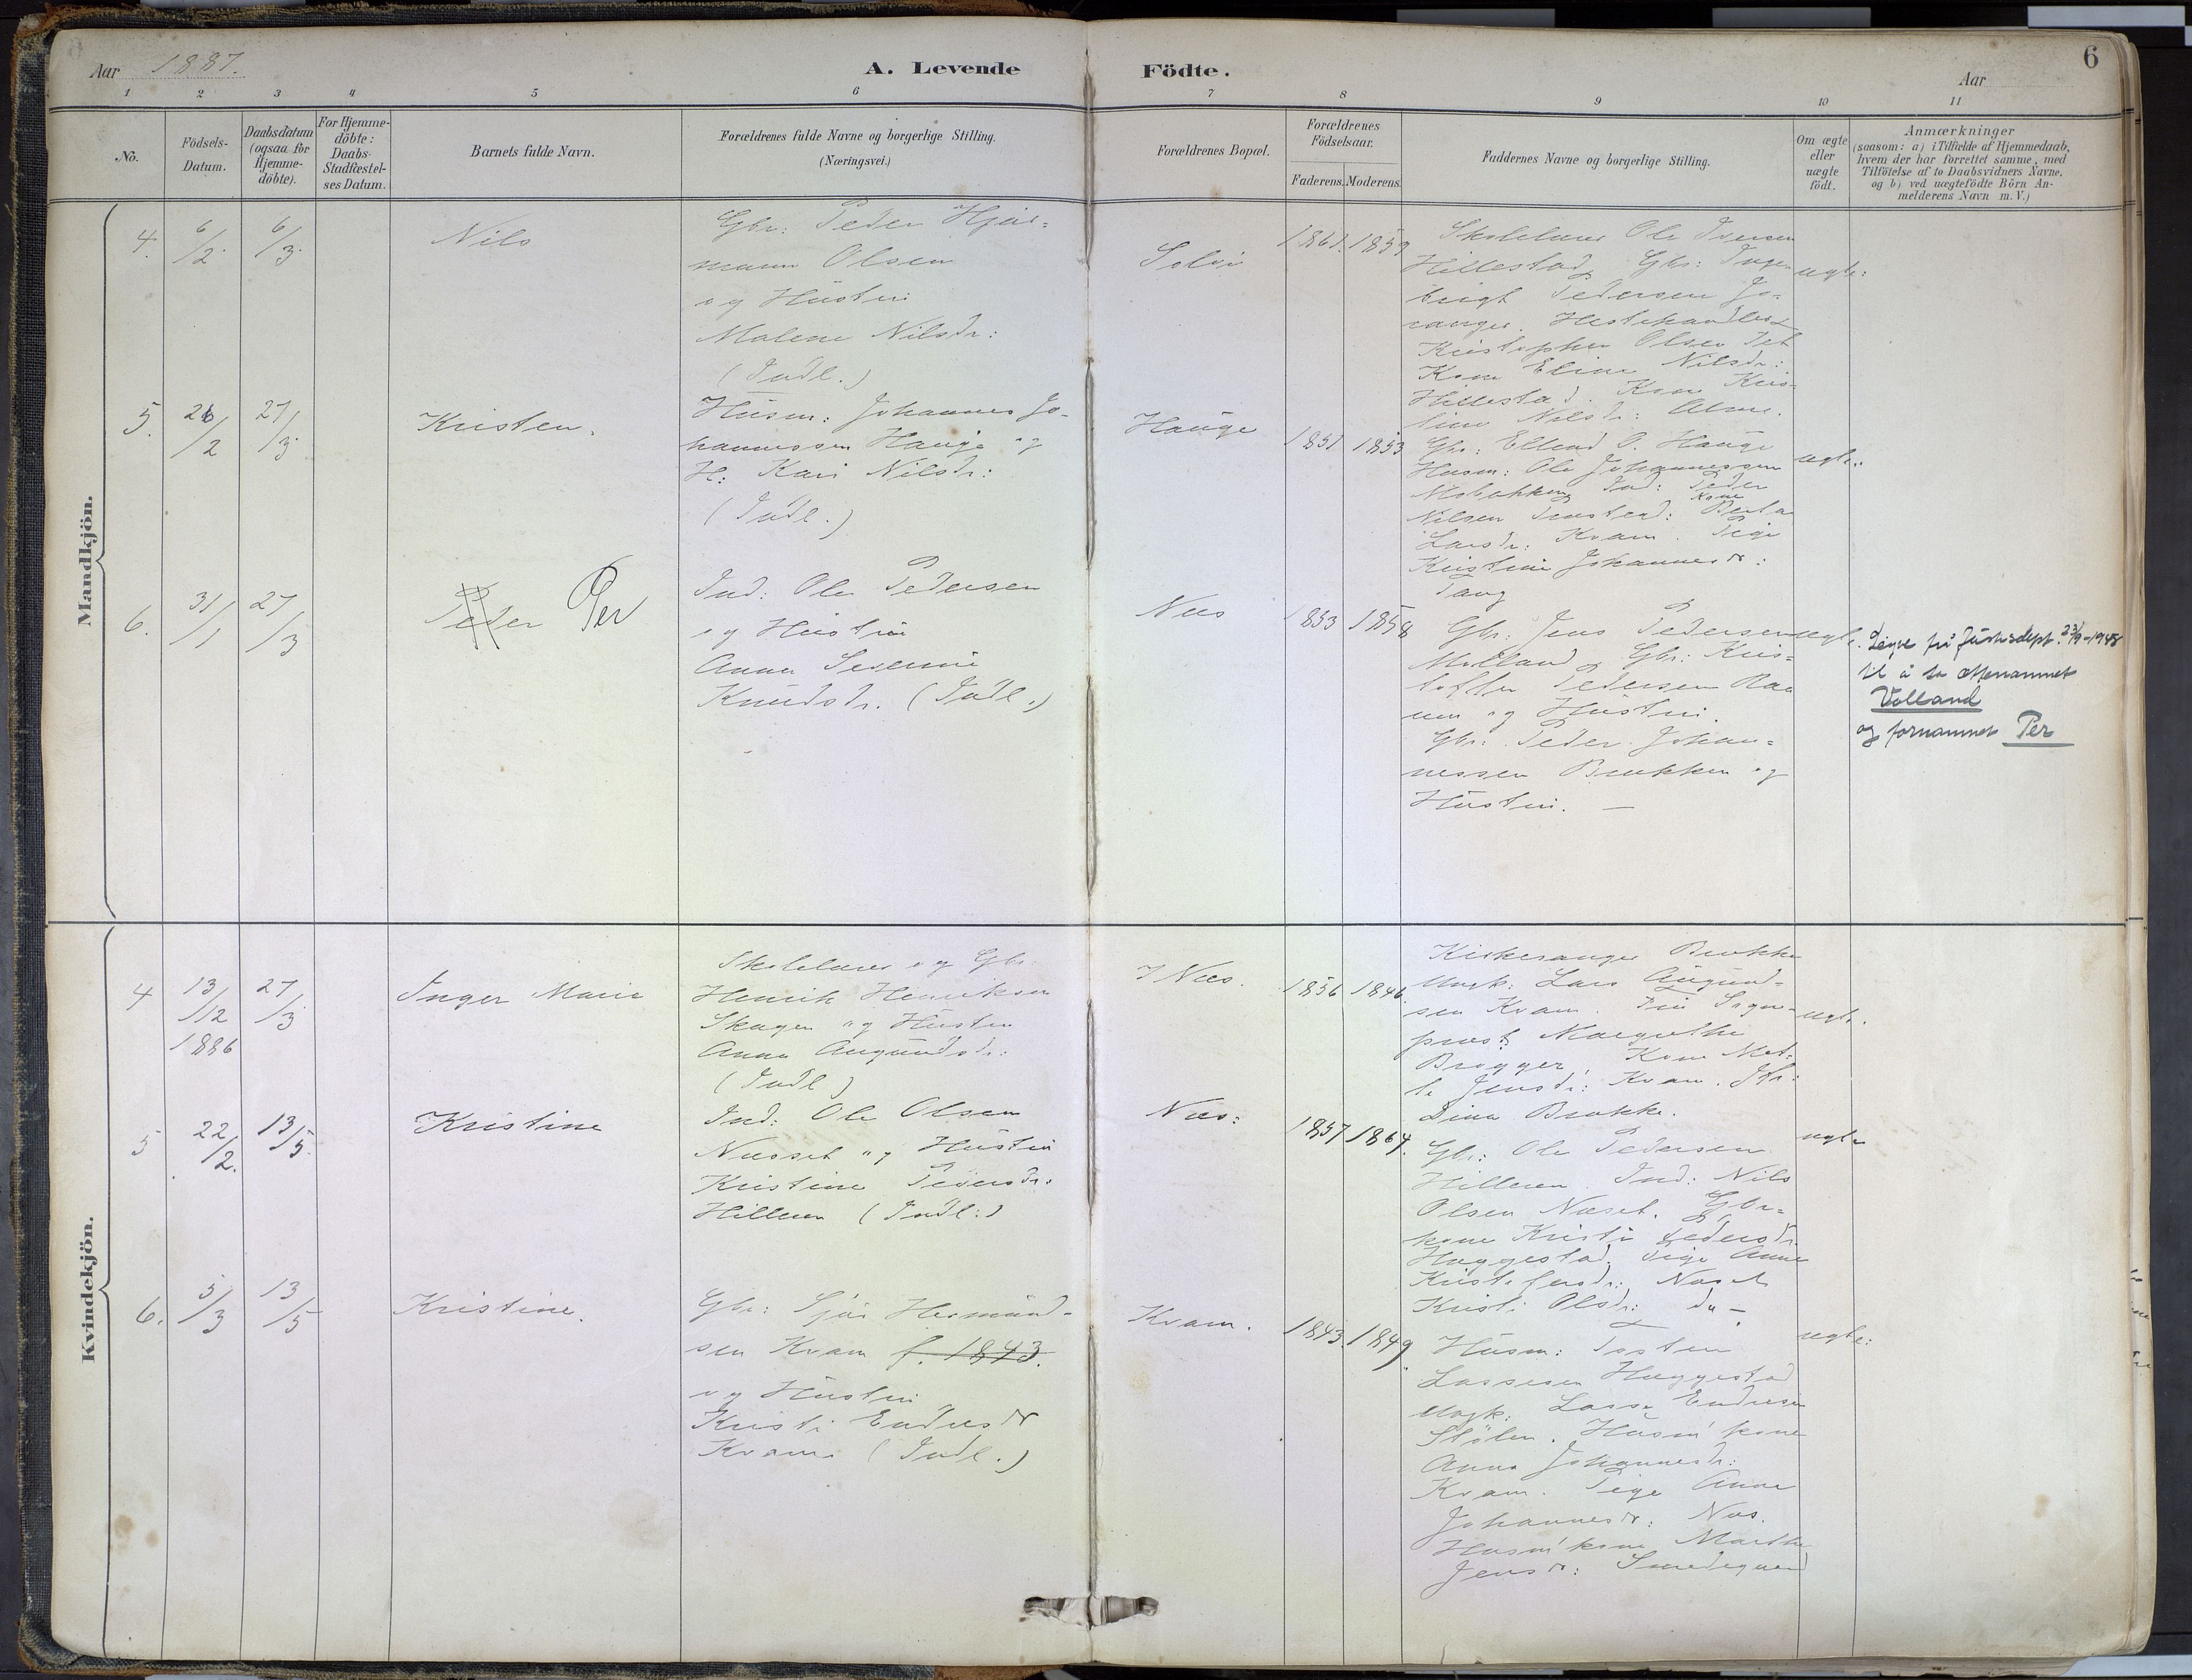 6
Aar 1887.
A. Levende Födte.
Aar
1 2 3 4 5 6 7 8 9 10 11
No.
Födsels-
Datum.
Daabsdatum
(ogsaa for
Hjemme-
döbte).
For Hjemme-
döbte:
Daabs-
Stadfæstel-
ses Datum.
Barnets fulde Navn.
Forældrenes fulde Navne og borgerlige Stilling.
(Næringsvei.)
Forældrenes Bopæl.
Forældrenes
Födselsaar.
Faderens. Moderens.
Faddernes Navne og borgerlige Stilling.
Om ægte
eller
uægte
födt.
Anmærkninger
(saasom: a) i Tilfælde af Hjemmedaab,
hvem der har forrettet samme, med
Tilföielse af to Daabsvidners Navne,
og b) ved uægtefödte Börn An-
melderens Navn m. V.)
Mandkjön.
4. 6/2. 6/3.
Nils
Gbr: Peder Hjør-
mann Olsen
og Hustru
Malene Nilsdr:
(Indl.)
1861. 1859
Skolelærer Ole Iversen
Hillestad, Gbr: Inge-
brigt Pedersen Jo-
ranger. Hestehandler
Kristopher Olsen
Kone Eline Nilsdr:
Hillestad. Kone Kris-
tine Nilsdr: Alme.
ægte:
5. 26/2 27/3.
Kristen.
Husm: Johannes Jo-
hannessen Hauge og
H: Kari Nilsdr:
(Indl.)
Hauge
1851 1853
Gbr: Ellend O. Hauge
Husm: Ole Johannessen
Mobakken, Ind: Peder
Nilsen Kone Berta
Larsdr: Kvam. Pige
Kristine Johannesdr:
Tang
ægte:
6. 31/1 27/3
Peder Per
Ind: Ole Pedersen
og Hustru
Anna Severine
Knudsdr. (Indl.)
Næs
1853 1858
Gbr: Jens Pedersen
Molland, Gbr: Kris-
toffer Pedersen Raa
um og Hustru.
Gbr: Peder Johan-
nessen Brækken og
Hustru. —
ægte.
Løyve frå Justisdept. 23/9-1948
til å ta etternamnet
Volland
og fornamnet Per
Kvindekjön.
4 13/12 1886 27/3.
Inger Marie
Skolelærer og Gbr.
Henrik Henriksen
Skagen og Hustru
Anna Augundsdr:
(Indl)
I Næs.
1856 1846
Kirkesanger Brække
Ungk: Lars Augund-
sen Kvam. Fru Sogne-
prest Margrethe
Brøgger, Kone Met-
te Jensdr: Kvam. Jfr:
Dina Brække.
ægte.
5 22/2. 13/5.
Kristine
Ind: Ole Olsen
Næsset og Hustru
Kristine Pedersdr.
Hilleren (Indl:)
Næs:
1857 1864.
Gbr: Ole Pedersen
Hilleren. Ind: Nils
Olsen Næset. Gbr-
kone Kristi Pedersdr.
Haggestad. Pige Anne
Kristofersdr: Næset
Kristi Olsdr: do —
ægte
6. 5/3 13/5
Kristine.
Gbr: Sjur Hermund-
sen Kvam f. 1843.
og Hustru
Kristi Endresdr
Kvam (Indl.)
Kvam.
1843. 1849.
Husm: Tosten
Lassesen Haggestad
Ungk: Lasse Endresen
Stölen. Husm'kone
Anna Johannesdr:
Kvam. Pige Anna
Johannesdr: Næs.
Husm'kone Marthe
Jensdr: Smedegaard
ægte: